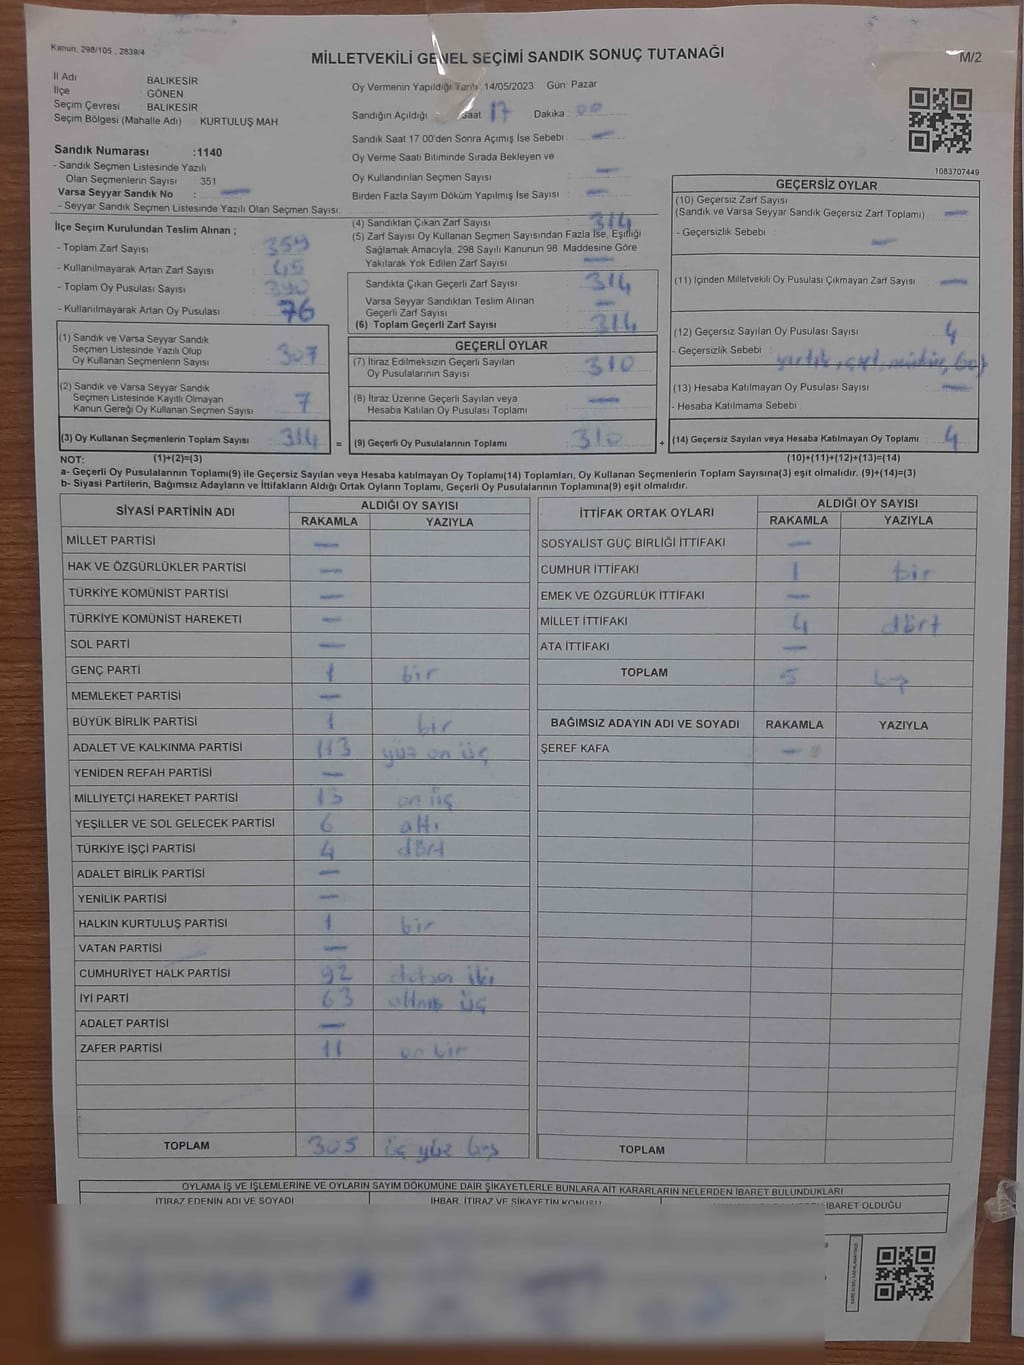 Kanun, 298/105 , 2839/4
MİLLETVEKİLİ GENEL SEÇİMİ SANDIK SONUÇ TUTANAĞI
M/2
İl Adı BALIKESİR
İlçe GÖNEN
Seçim Çevresi : BALIKESİR
Seçim Bölgesi (Mahalle Adı) KURTULUŞ MAH.
Sandık Numarası :1140
- Sandık Seçmen Listesinde Yazılı
Olan Seçmenlerin Sayısı 351
Varsa Seyyar Sandık No : —
- Seyyar Sandık Seçmen Listesinde Yazılı Olan Seçmen Sayısı
Oy Vermenin Yapıldığı Tarih 14/05/2023 Gün: Pazar
Sandığın Açıldığı Saat 17 Dakika : 00
Sandık Saat 17 00'den Sonra Açımış İse Sebebi : —
Oy Verme Saati Bitiminde Sırada Bekleyen ve
Oy Kullandırılan Seçmen Sayısı : —
Birden Fazla Sayım Döküm Yapılmış İse Sayısı : —
1083707449
İlçe Seçim Kurulundan Teslim Alınan ;
- Toplam Zarf Sayısı : 359
- Kullanılmayarak Artan Zarf Sayısı : 45
- Toplam Oy Pusulası Sayısı : 390
- Kullanılmayarak Artan Oy Pusulası : 76
(1) Sandık ve Varsa Seyyar Sandık
Seçmen Listesinde Yazılı Olup
Oy Kullanan Seçmenlerin Sayısı : 307
(2) Sandık ve Varsa Seyyar Sandık
Seçmen Listesinde Kayıtlı Olmayan
Kanun Gereği Oy Kullanan Seçmen Sayısı : 7
(3) Oy Kullanan Seçmenlerin Toplam Sayısı : 314 =
(4) Sandıktan Çıkan Zarf Sayısı : 314
(5) Zarf Sayısı Oy Kullanan Seçmen Sayısından Fazla İse, Eşitliği
Sağlamak Amacıyla, 298 Sayılı Kanunun 98. Maddesine Göre
Yakılarak Yok Edilen Zarf Sayısı : —
Sandıkta Çıkan Geçerli Zarf Sayısı : 314
Varsa Seyyar Sandıktan Teslim Alınan
Geçerli Zarf Sayısı : —
(6) Toplam Geçerli Zarf Sayısı : 314
GEÇERLİ OYLAR
(7) İtiraz Edilmeksizin Geçerli Sayılan
Oy Pusulalarının Sayısı : 310
(8) İtiraz Üzerine Geçerli Sayılan veya
Hesaba Katılan Oy Pusulası Toplamı : —
(9) Geçerli Oy Pusulalarının Toplamı : 310 +
GEÇERSİZ OYLAR
(10) Geçersiz Zarf Sayısı
(Sandık ve Varsa Seyyar Sandık Geçersiz Zarf Toplamı) : —
- Geçersizlik Sebebi : —
(11) İçinden Milletvekili Oy Pusulası Çıkmayan Zarf Sayısı : —
(12) Geçersiz Sayılan Oy Pusulası Sayısı : 4
- Geçersizlik Sebebi :
(13) Hesaba Katılmayan Oy Pusulası Sayısı : —
- Hesaba Katılmama Sebebi :
(14) Geçersiz Sayılan veya Hesaba Katılmayan Oy Toplamı : 4
NOT: (1)+(2)=(3) (10)+(11)+(12)+(13)=(14)
a- Geçerli Oy Pusulalarının Toplamı(9) ile Geçersiz Sayılan veya Hesaba katılmayan Oy Toplamı(14) Toplamları, Oy Kullanan Seçmenlerin Toplam Sayısına(3) eşit olmalıdır. (9)+(14)=(3)
b- Siyasi Partilerin, Bağımsız Adayların ve İttifakların Aldığı Ortak Oyların Toplamı, Geçerli Oy Pusulalarının Toplamına(9) eşit olmalıdır.
SİYASİ PARTİNİN ADI ALDIĞI OY SAYISI
RAKAMLA YAZIYLA
MİLLET PARTİSİ —
HAK VE ÖZGÜRLÜKLER PARTİSİ —
TÜRKİYE KOMÜNİST PARTİSİ —
TÜRKİYE KOMÜNİST HAREKETİ —
SOL PARTİ —
GENÇ PARTİ 1 bir
MEMLEKET PARTİSİ —
BÜYÜK BİRLİK PARTİSİ 1 bir
ADALET VE KALKINMA PARTİSİ 113 yüz on üç
YENİDEN REFAH PARTİSİ —
MİLLİYETÇİ HAREKET PARTİSİ 13 on üç
YEŞİLLER VE SOL GELECEK PARTİSİ 6 altı
TÜRKİYE İŞÇİ PARTİSİ 4 dört
ADALET BİRLİK PARTİSİ —
YENİLİK PARTİSİ —
HALKIN KURTULUŞ PARTİSİ 1 bir
VATAN PARTİSİ —
CUMHURİYET HALK PARTİSİ 92 doksan iki
İYİ PARTİ 63 altmış üç
ADALET PARTİSİ —
ZAFER PARTİSİ 11 on bir
TOPLAM 305 üç yüz beş
İTTİFAK ORTAK OYLARI ALDIĞI OY SAYISI
RAKAMLA YAZIYLA
SOSYALİST GÜÇ BİRLİĞİ İTTİFAKI —
CUMHUR İTTİFAKI 1 bir
EMEK VE ÖZGÜRLÜK İTTİFAKI —
MİLLET İTTİFAKI 4 dört
ATA İTTİFAKI —
TOPLAM 5 beş
BAĞIMSIZ ADAYIN ADI VE SOYADI RAKAMLA YAZIYLA
ŞEREF KAFA —
TOPLAM
OYLAMA İŞ VE İŞLEMLERİNE VE OYLARIN SAYIM DÖKÜMÜNE DAİR ŞİKAYETLERLE BUNLARA AİT KARARLARIN NELERDEN İBARET BULUNDUKLARI
İTİRAZ EDENİN ADI VE SOYADI İHBAR, İTİRAZ VE ŞİKAYETİN KONUSU İBARET OLDUĞU